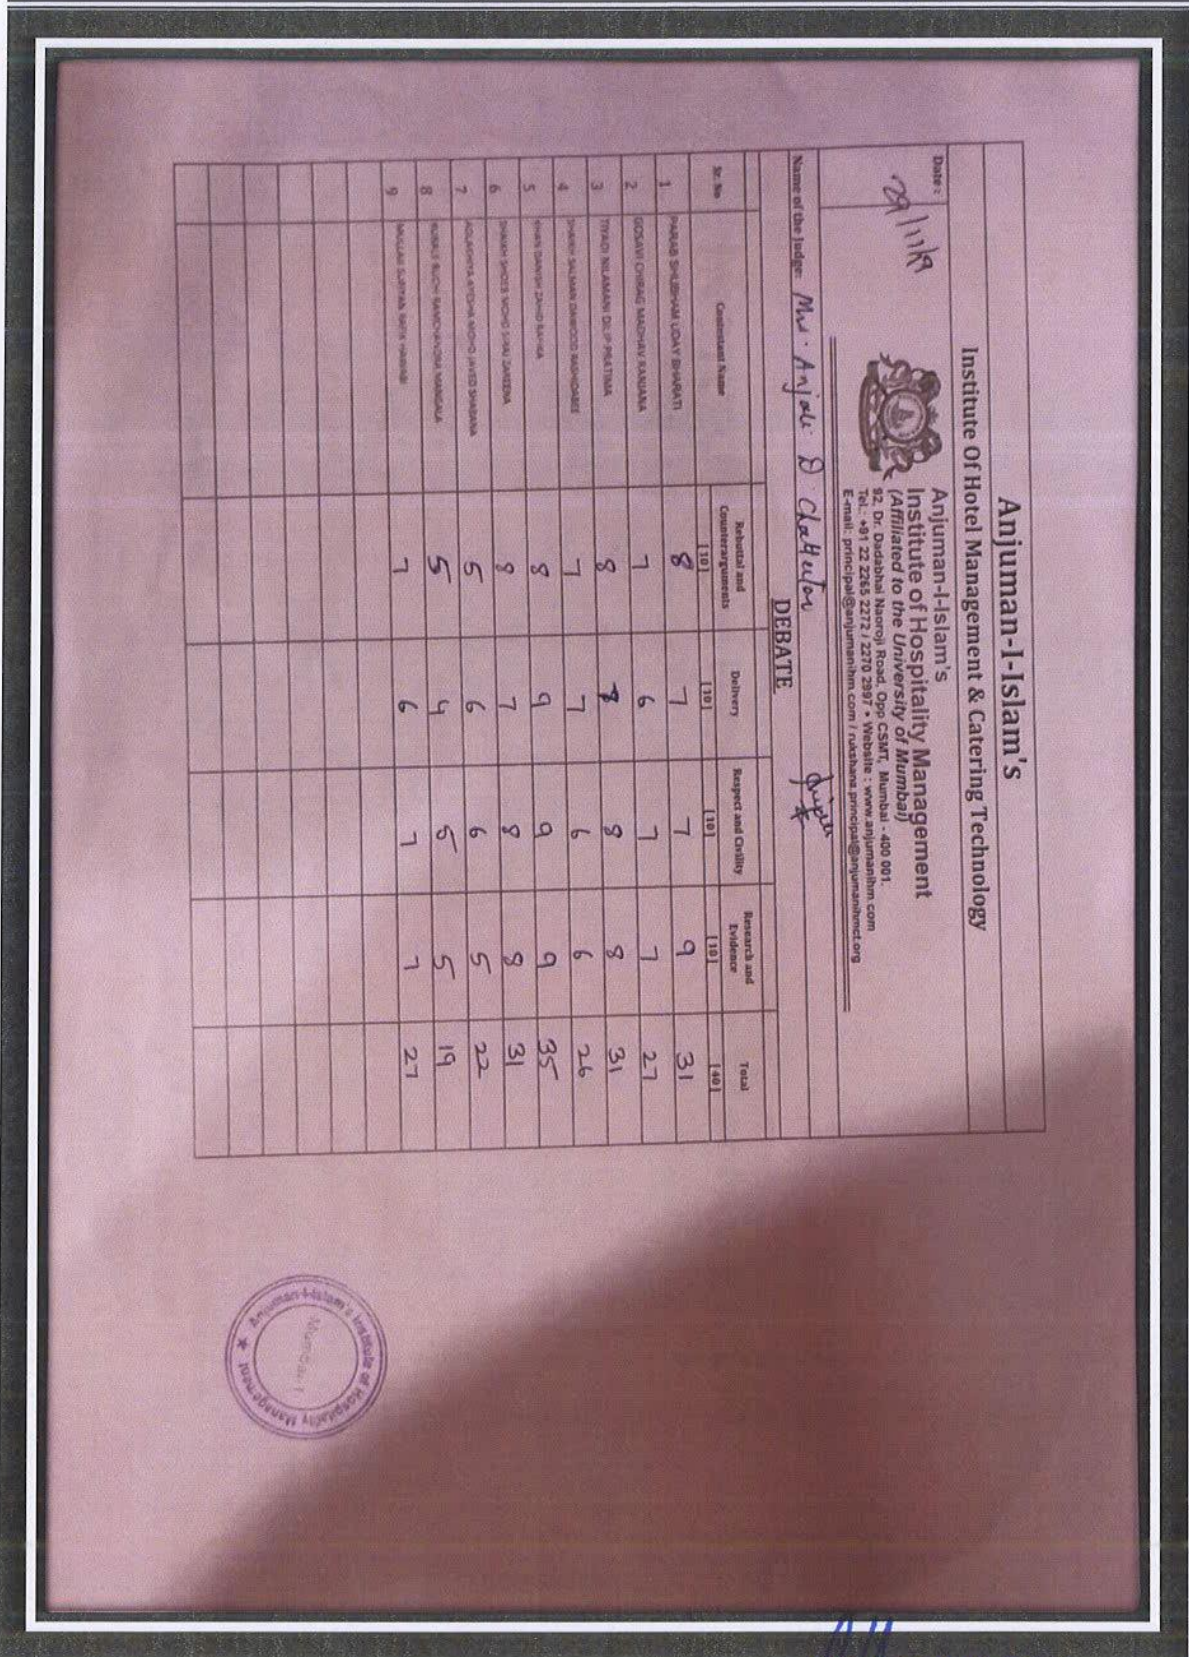 Anjuman-I-Islam's
Institute Of Hotel Management & Catering Technology
Date :
29/11/19
Anjuman-I-Islam's
Institute of Hospitality Management
(Affiliated to the University of Mumbai)
92, Dr. Dadabhai Naoroji Road, Opp CSMT, Mumbai - 400 001.
Tel.: +91 22 2265 2272 / 2270 2997 • Website : www.anjumanihm.com
E-mail: principal@anjumanihm.com / rukshana.principal@anjumanihmct.org
Name of the Judge: Mrs. Anjali D
DEBATE
Sr. No Contestant Name Rebuttal and Counterarguments [10] Delivery [10] Respect and Civility [10] Research and Evidence [10] Total [40]
1 PARAB SHUBHAM UDAY BHARATI 8 7 7 9 31
2 GOSAVI CHIRAG MADHAV RANJANA 7 6 7 7 27
3 TIYADI NILAMANI DILIP PRATIMA 8 8 8 31
4 SHAIKH SALMAN DAWOOD RASHIDABEE 7 7 6 6 26
5 KHAN DANISH ZAHID 8 9 9 9 35
6 SHAIKH SHOEB MOHD SIRAJ ZAREENA 8 7 8 8 31
7 AYESHA MOHD JAVED SHABANA 5 6 6 5 22
8 RUCHI RAMCHANDRA MANGALA 5 4 5 5 19
9 7 6 7 7 27
Anjuman-I-Islam's Institute of Hospitality Management ★
Mumbai